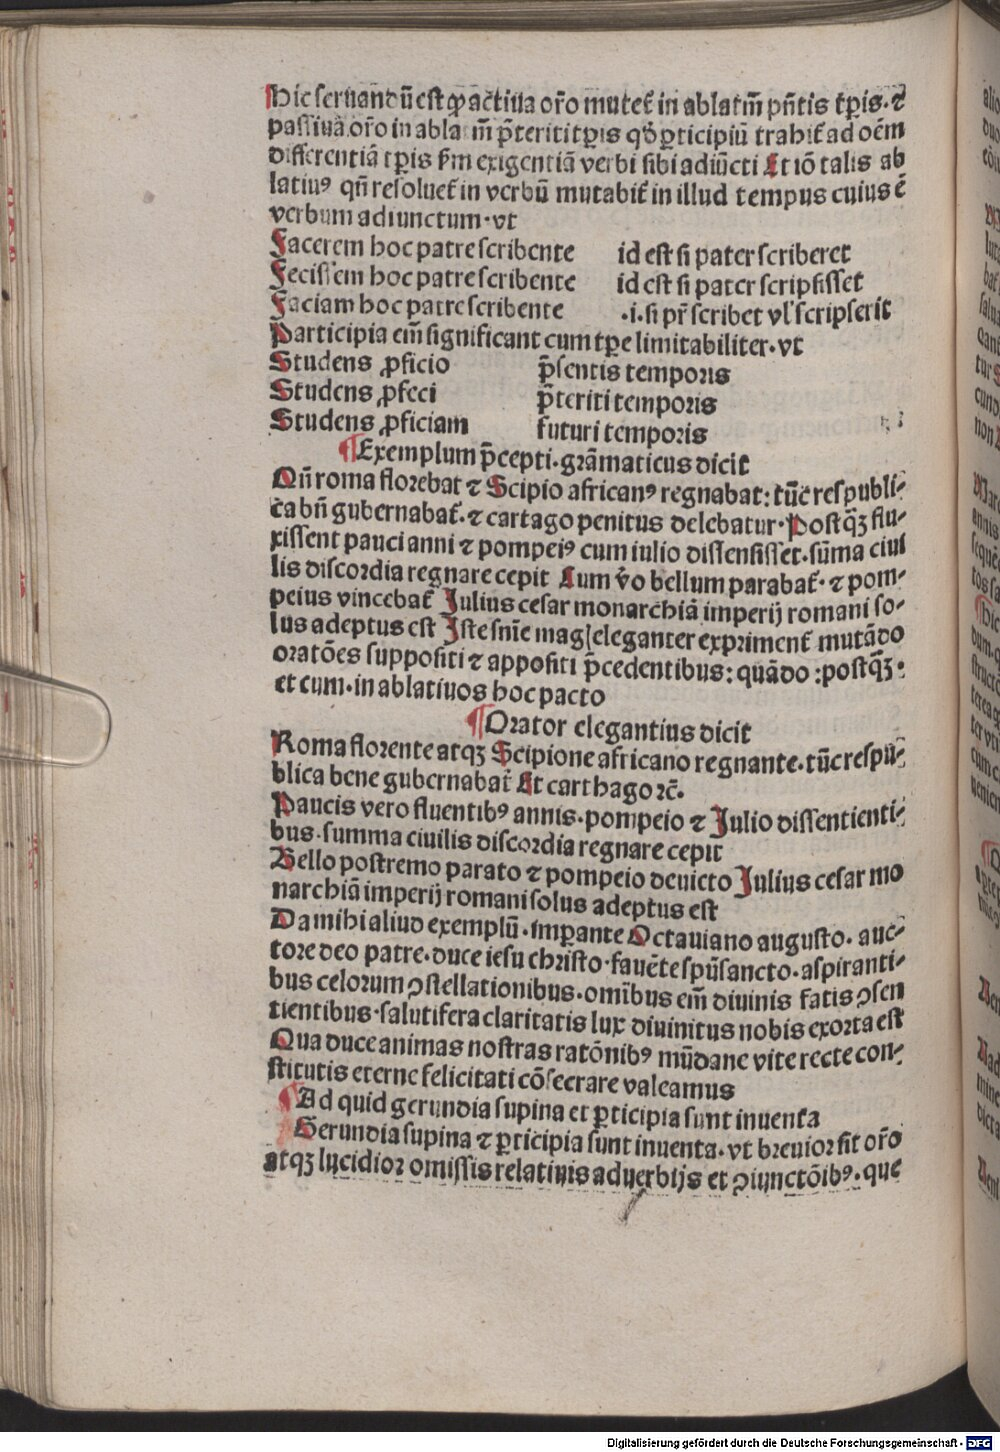 Hic seruandū est ꝙ actiua or̄o mutet̄ in ablatm̄ pn̄tis tꝑis. ⁊
passiua or̄o in ablatm̄ p̄teriti tꝑis qꝺ ꝑticipiū trahit̄ ad oēm
differentiā tꝑis ẜm exigentiā verbi sibi adiūcti Et iō talis ab
latiuꝰ qn̄ resoluet̄ in verbū mutabit̄ in illud tempus cuius ē
verbum adiunctum. vt
Facerem hoc patre scribente id est si pater scriberet
Fecissem hoc patre scribente id est si pater scripsisset
Faciam hoc patre scribente .i. si pr̄ scribet vl' scripserit
Participia em̄ significant cum tꝑe limitabiliter. vt
Studens ꝓficio p̄sentis temporis
Studens ꝓfeci p̄teriti temporis
Studens ꝓficiam futuri temporis
¶ Exemplum p̄cepti. grāmaticus dicit
Qn̄ roma florebat ⁊ Scipio africanꝰ regnabat: tūc respubli-
ca bn̄ gubernabat̄. ⁊ cartago penitus delebatur. Postqꝫ flu-
xissent pauci anni ⁊ pompeiꝰ cum iulio dissensisset. sūma ciui
lis discordia regnare cepit Cum v̄o bellum parabat̄. ⁊ pom-
peius vincebat̄ Julius cesar monarchiā imperij romani so-
lus adeptus est Iste sn̄ie mag eleganter expriment̄ mutādo
oratōes suppositi ⁊ appositi p̄cedentibus: quādo: postqꝫ:
et cum. in ablatiuos hoc pacto
¶ Orator elegantius dicit
Roma florente atqꝫ Scipione africano regnante. tūc respu-
blica bene gubernabat̄ Et carthago ⁊c̄.
Paucis vero fluentibꝰ annis. pompeio ⁊ Julio dissentienti-
bus. summa ciuilis discordia regnare cepit
Bello postremo parato ⁊ pompeio deuicto Julius cesar mo
narchiā imperij romani solus adeptus est
Da mihi aliud exemplū. imꝑante Octauiano augusto. auc-
tore deo patre. duce iesu christo. fauēte spūsancto. aspiranti-
bus celorum ꝯstellationibus. omībus em̄ diuinis fatis ꝯsen
tientibus. salutifera claritatis lux diuinitus nobis exorta est
Qua duce animas nostras ratōnibꝰ mūdane vite recte con-
stitutis eterne felicitati cōsecrare valeamus
¶ Ad quid gerundia supina et ꝑticipia sunt inuenta
Gerundia supina ⁊ ꝑticipia sunt inuenta. vt breuior sit or̄o
atqꝫ lucidior omissis relatiuis aduerbijs et ꝯiunctōibꝰ. que
Digitalisierung gefördert durch die Deutsche Forschungsgemeinschaft - DFG